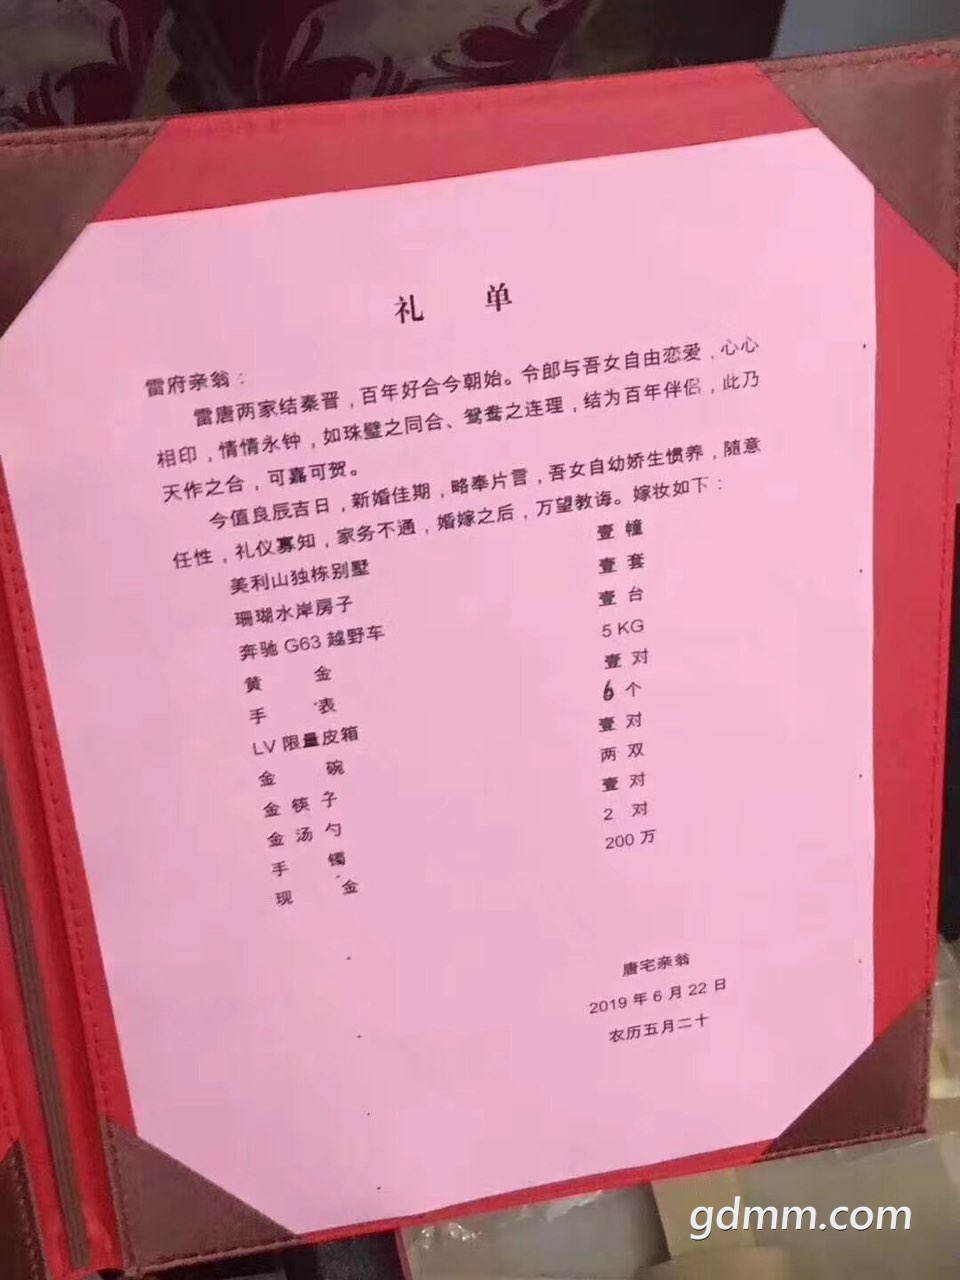 礼 单
雷府亲翁：
雷唐两家结秦晋，百年好合今朝始。令郎与吾女自由恋爱，心心
相印，情情永钟，如珠璧之同合、鸳鸯之连理，结为百年伴侣，此乃
天作之合，可嘉可贺。
今值良辰吉日，新婚佳期，略奉片言，吾女自幼娇生惯养，随意
任性，礼仪寡知，家务不通，婚嫁之后，万望教诲。嫁妆如下：
美利山独栋别墅 壹 幢
珊瑚水岸房子 壹 套
奔驰 G63 越野车 壹 台
黄 金 5 KG
手 表 壹 对
LV 限量皮箱 6 个
金 碗 壹 对
金 筷 子 两 双
金 汤 勺 壹 对
手 镯 2 对
现 金 200 万
唐宅亲翁
2019 年 6 月 22 日
农历五月二十
gdmm.com